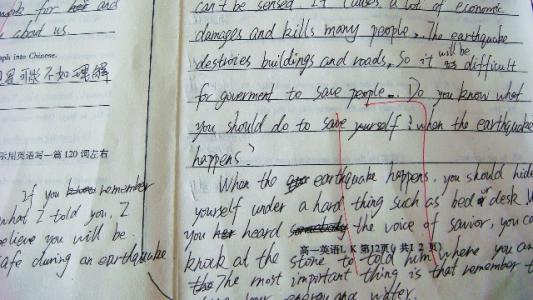 can't be sensed It causes a lot of economic
damages and kills many people. The earthquake
destroies buildings and roads, so it will be difficult
for goverment to save people. Do you know what
you should do to save yourself when the earthquake
happens?
When the earthquake happens, you should hide
yourself under a hard thing such as bed or desk.
you heard the voice of savior, you ca
高一英语L K 第12页( 共12页)
knock at the stone to told him where you a
The most important thing is that remember t
energy and water.
and
about us
into Chinese.
不如理解
示用英语写一篇 120 词左右
If you remember
what I told you, I
elieve you will be
afe during an earthquake